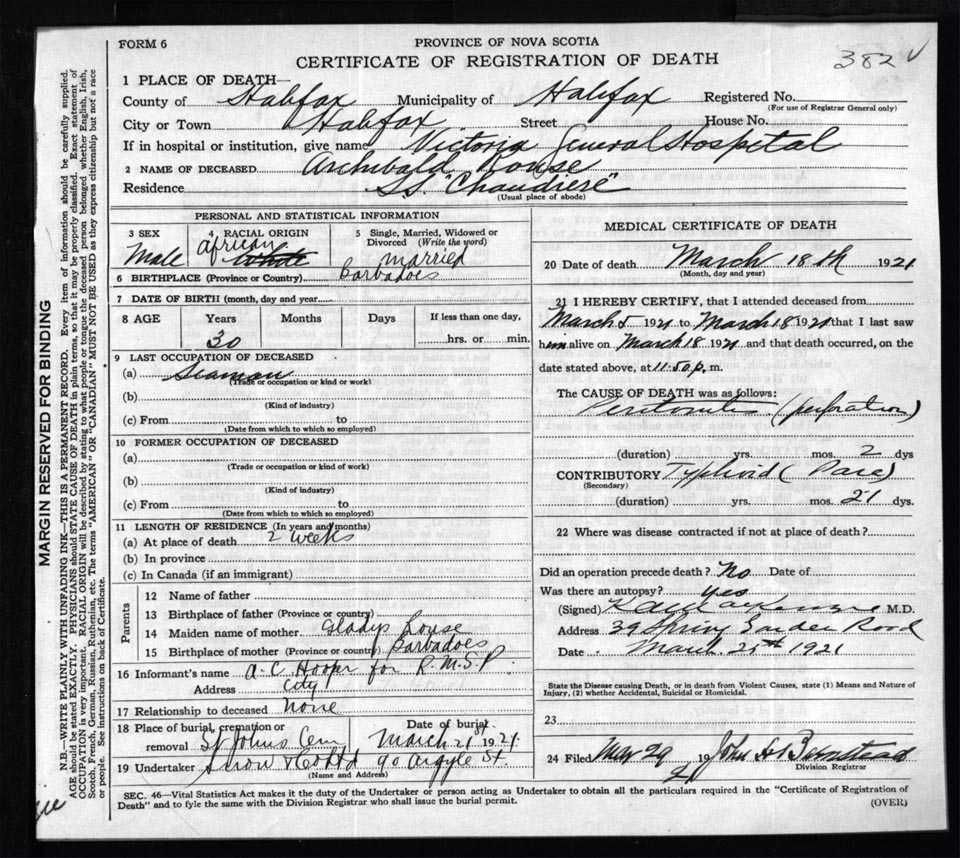 FORM 6
PROVINCE OF NOVA SCOTIA
CERTIFICATE OF REGISTRATION OF DEATH
382
1 PLACE OF DEATH—
County of Halifax Municipality of Halifax Registered No.
(For use of Registrar General only)
City or Town Halifax Street House No.
If in hospital or institution, give name Victoria General Hospital
2 NAME OF DECEASED Archibald
Residence S.S. "Chaudiere"
(Usual place of abode)
PERSONAL AND STATISTICAL INFORMATION
3 SEX
Male
4 RACIAL ORIGIN
african
White
5 Single, Married, Widowed or Divorced (Write the word)
married
6 BIRTHPLACE (Province or Country) Barbadoes
7 DATE OF BIRTH (month, day and year)
8 AGE Years Months Days If less than one day,
30 hrs. or min.
9 LAST OCCUPATION OF DECEASED
(a) Seaman
(Trade or occupation or kind or work)
(b)
(Kind of industry)
(c) From to
(Date from which to which so employed)
10 FORMER OCCUPATION OF DECEASED
(a)
(Trade or occupation or kind of work)
(b)
(Kind of industry)
(c) From to
(Date from which to which so employed)
11 LENGTH OF RESIDENCE (In years and months)
(a) At place of death 2 weeks
(b) In province
(c) In Canada (if an immigrant)
Parents
12 Name of father
13 Birthplace of father (Province or country)
14 Maiden name of mother Gladys
15 Birthplace of mother (Province or country) Barbadoes
16 Informant's name A. C. for R.M.S.P.
Address City
17 Relationship to deceased none
18 Place of burial, cremation or Date of burial
removal St Johns Cem March 21st 1921
19 Undertaker Snow & Co Ltd 90 Argyle St.
(Name and Address)
MEDICAL CERTIFICATE OF DEATH
20 Date of death March 18th 1921
(Month, day and year)
21 I HEREBY CERTIFY, that I attended deceased from
March 5 1921 to March 18 1921 that I last saw
him alive on March 18 1921 and that death occurred, on the
date stated above, at 11.50 p. m.
The CAUSE OF DEATH was as follows:
Peritonitis (perforation)
(duration) yrs. mos. 2 dys
CONTRIBUTORY Typhoid (Para)
(Secondary)
(duration) yrs. mos. 21 dys.
22 Where was disease contracted if not at place of death?
Did an operation precede death? No Date of
Was there an autopsy? yes
(Signed) M.D.
Address 39 Spring Garden Road
Date March 25th 1921
State the Disease causing Death, or in death from Violent Causes, state (1) Means and Nature of
Injury, (2) whether Accidental, Suicidal or Homicidal.
23
24 Filed Mar 29 19 John H
Division Registrar
SEC. 46—Vital Statistics Act makes it the duty of the Undertaker or person acting as Undertaker to obtain all the particulars required in the "Certificate of Registration of
Death" and to fyle the same with the Division Registrar who shall issue the burial permit.
(OVER)
MARGIN RESERVED FOR BINDING
N.B.—WRITE PLAINLY WITH UNFADING INK—THIS IS A PERMANENT RECORD. Every item of information should be carefully supplied.
AGE should be stated EXACTLY. PHYSICIANS should STATE CAUSE OF DEATH in plain terms, so that it may be properly classified. Exact statement of
OCCUPATION is very important. RACIAL ORIGIN will be described by stating to what people or tongue the deceased person belonged whether English, Irish,
Scotch, French, German, Russian, Ruthenian, etc. The terms "AMERICAN" OR "CANADIAN" MUST NOT BE USED as they express citizenship but not a race
or people. See instructions on back of Certificate.